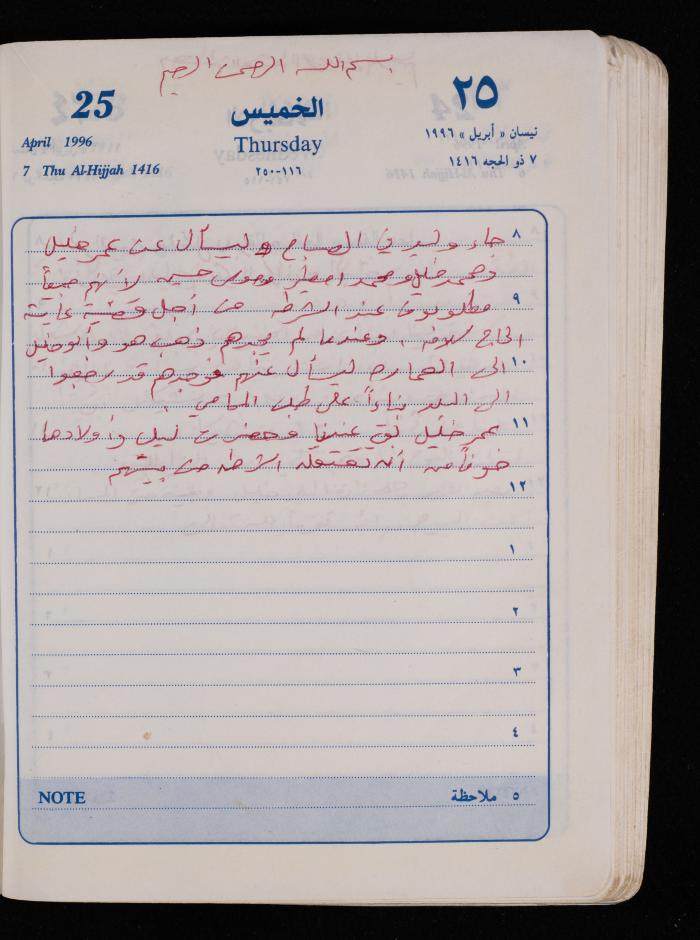 بسم الله الرحمن الرحيم
25 الخميس ٢٥
April 1996 Thursday نيسان « أبريل » ١٩٩٦
7 Thu Al-Hijjah 1416 ١١٦-٢٥٠ ٧ ذو الحجه ١٤١٦
٨ جاء وليد في الصباح ليسأل عن عمر خليل
ومحمد خليل ومحمد وموسى حسين لأنهم جميعاً
٩ مطلوبون عند الشرطه من أجل قضية
الحاج سلامه . وعندما لم يجدهم ذهب هو وأبو خليل
١٠ الى العماره ليسأل عنهم فوجدهم قد رجعوا
الى البلد بناءاً على طلب المحامي .
١١ عمر خليل بقي عندنا وحضرت ليلى وأولادها
خوفاً من أن تعتقله الشرطه من بيتهم
١٢
١
٢
٣
٤
NOTE ٥ ملاحظة